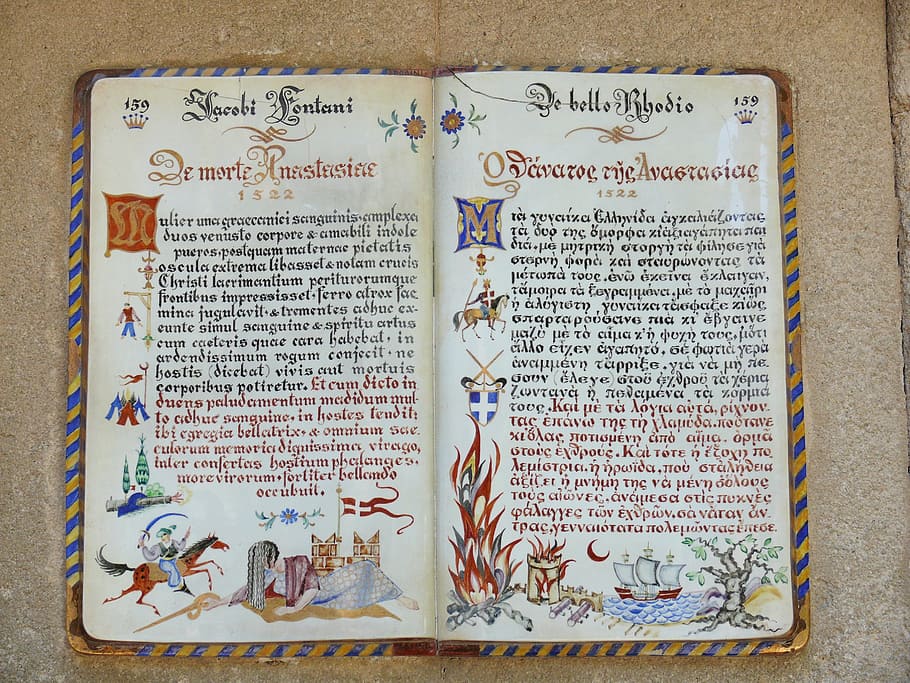 159 Jacobi Fontani
De morte Anastasiae
1522
Mulier una graecanici sanguinis · amplexa
duos venusto corpore & amabili indole
pueros · postquam maternae pietatis
oscula extrema libasset & notam crucis
Christi lacrimantium periturorumque
frontibus impressisset · ferro atrox fae
mina jugulavit · & trementes adhuc ex
eunte simul sanguine & spiritu artus
cum caeteris quae cara habebat · in
ardendissimum rogum conjecit · ne
hostis (dicebat) vivis aut mortuis
corporibus potiretur. Et cum dicto in
duens paludamentum madidum mul
to adhuc sanguine · in hostes tendit:
ibi egregia bellatrix · & omnium sae
culorum memoria dignissima virago,
inter consertas hostium phalanges ·
more virorum · fortiter bellando
occubuit.
De bello Rhodio 159
Ὁ θάνατος τῆς Ἀναστασίας
1522
Μιὰ γυναίκα Ἑλληνίδα ἀγκαλιάζοντας
τὰ δυό της ὄμορφα κι ἀξιαγάπητα παι
διά, μὲ μητρικὴ στοργὴ τὰ φίλησε γιὰ
στερνὴ φορὰ καὶ σταυρώνοντας τὰ
μέτωπά τους, ἐνῶ ἐκεῖνα ἔκλαιγαν,
τἄμοιρα τὰ ξεγραμμένα, μὲ τὸ μαχαίρι
ἡ ἀλύγιστη γυναίκα τἄσφαξε κι ὣς
σπαρταροῦσανε πιὰ κι ἔβγαινε
μαζὺ μὲ τὸ αἷμα κ' ἡ ψυχή τους, μ' ὅτι
ἄλλο εἶχεν ἀγαπητό, σὲ φωτιὰ γερὰ
ἀναμμένη τἄρριξε, γιὰ νὰ μὴ πέ
σουν (ἔλεγε) στοῦ ἐχθροῦ τὰ χέρια
ζωντανὰ ἢ πεθαμένα τὰ κορμιά
τους. Καὶ μὲ τὰ λόγια αὐτά, ρίχνον
τας ἐπάνω της τὴ χλαμύδα, ποὔτανε
κιόλας ποτισμένη ἀπὸ αἷμα, ὁρμᾶ
στοὺς ἐχθρούς. Καὶ τότε ἡ ἔξοχη πο
λεμίστρια, ἡ ἡρωίδα, ποὺ στ' ἀλήθεια
ἀξίζει ἡ μνήμη της νὰ μένη σ' ὅλους
τοὺς αἰῶνες, ἀνάμεσα στὶς πυκνὲς
φάλαγγες τῶν ἐχθρῶν, σὰ νἆταν ἄν
τρας, γενναιότατα πολεμώντας ἔπεσε.